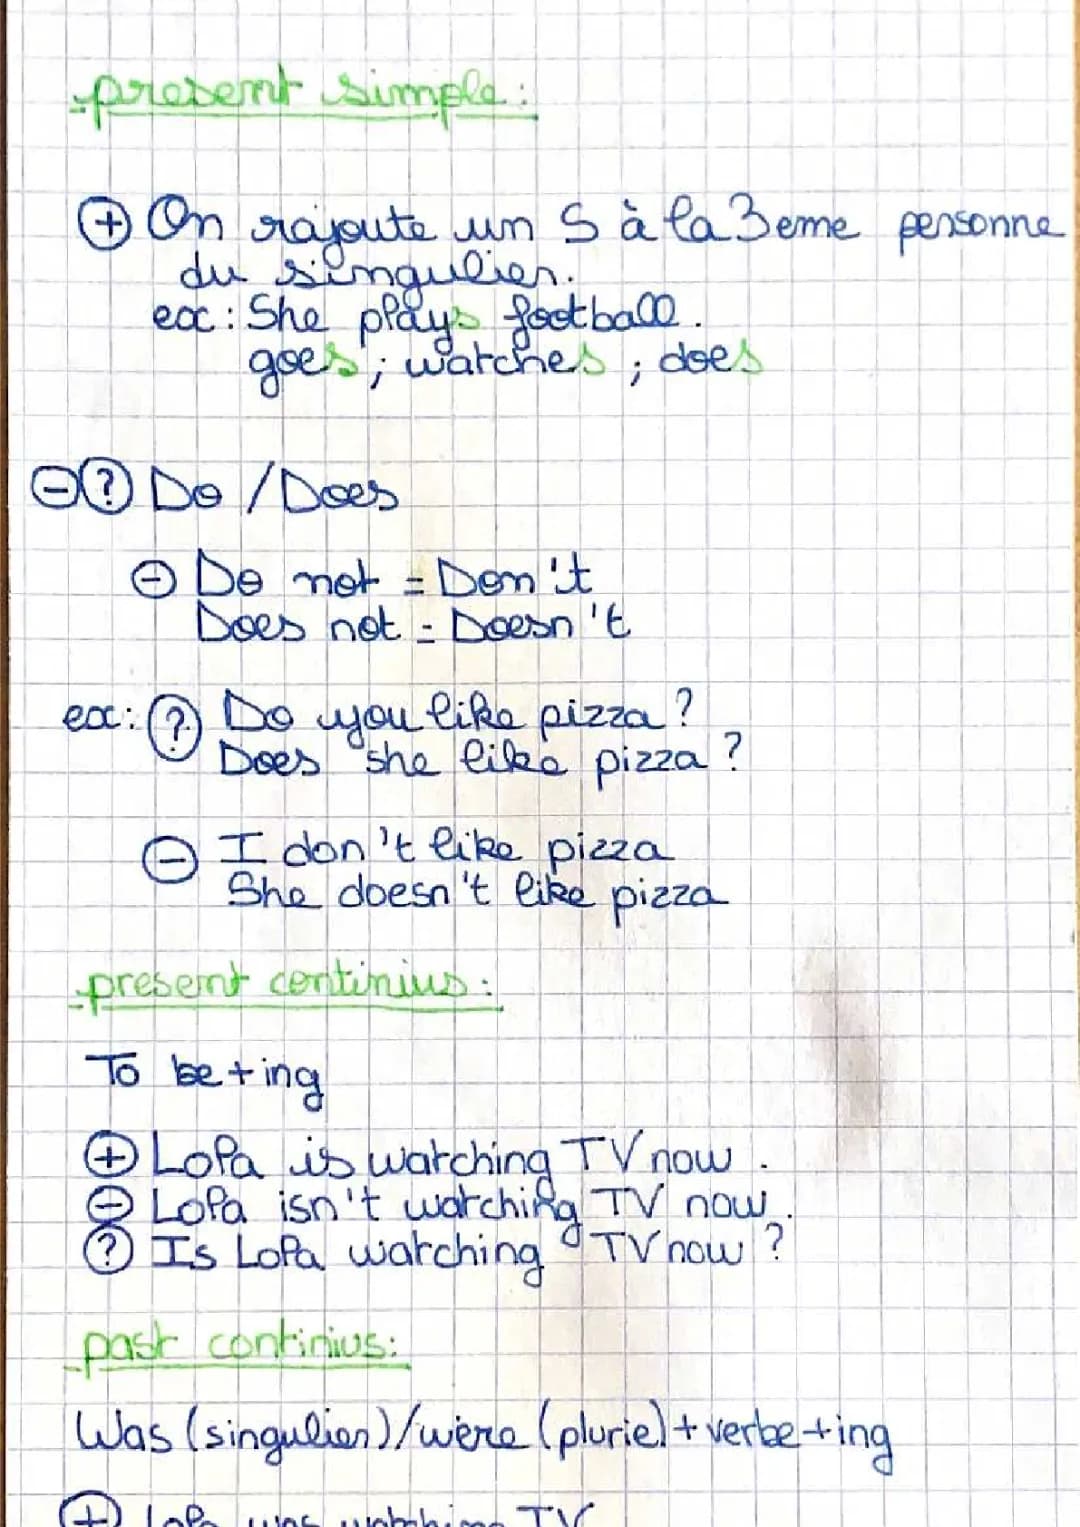 present simple:
⊕ On rajoute un S à la 3eme personne
du singulier.
ex: She plays football.
goes; watches; does
⊖ ? Do / Does
⊖ Do not = Don't
Does not = Doesn't
ex: ? Do you like pizza?
Does she like pizza?
⊖ I don't like pizza
She doesn't like pizza
present continius:
To be + ing
⊕ Lola is watching TV now.
⊖ Lola isn't watching TV now.
? Is Lola watching TV now?
past continius:
Was (singulier)/were (pluriel) + verbe + ing
⊕ Lola was watching TV